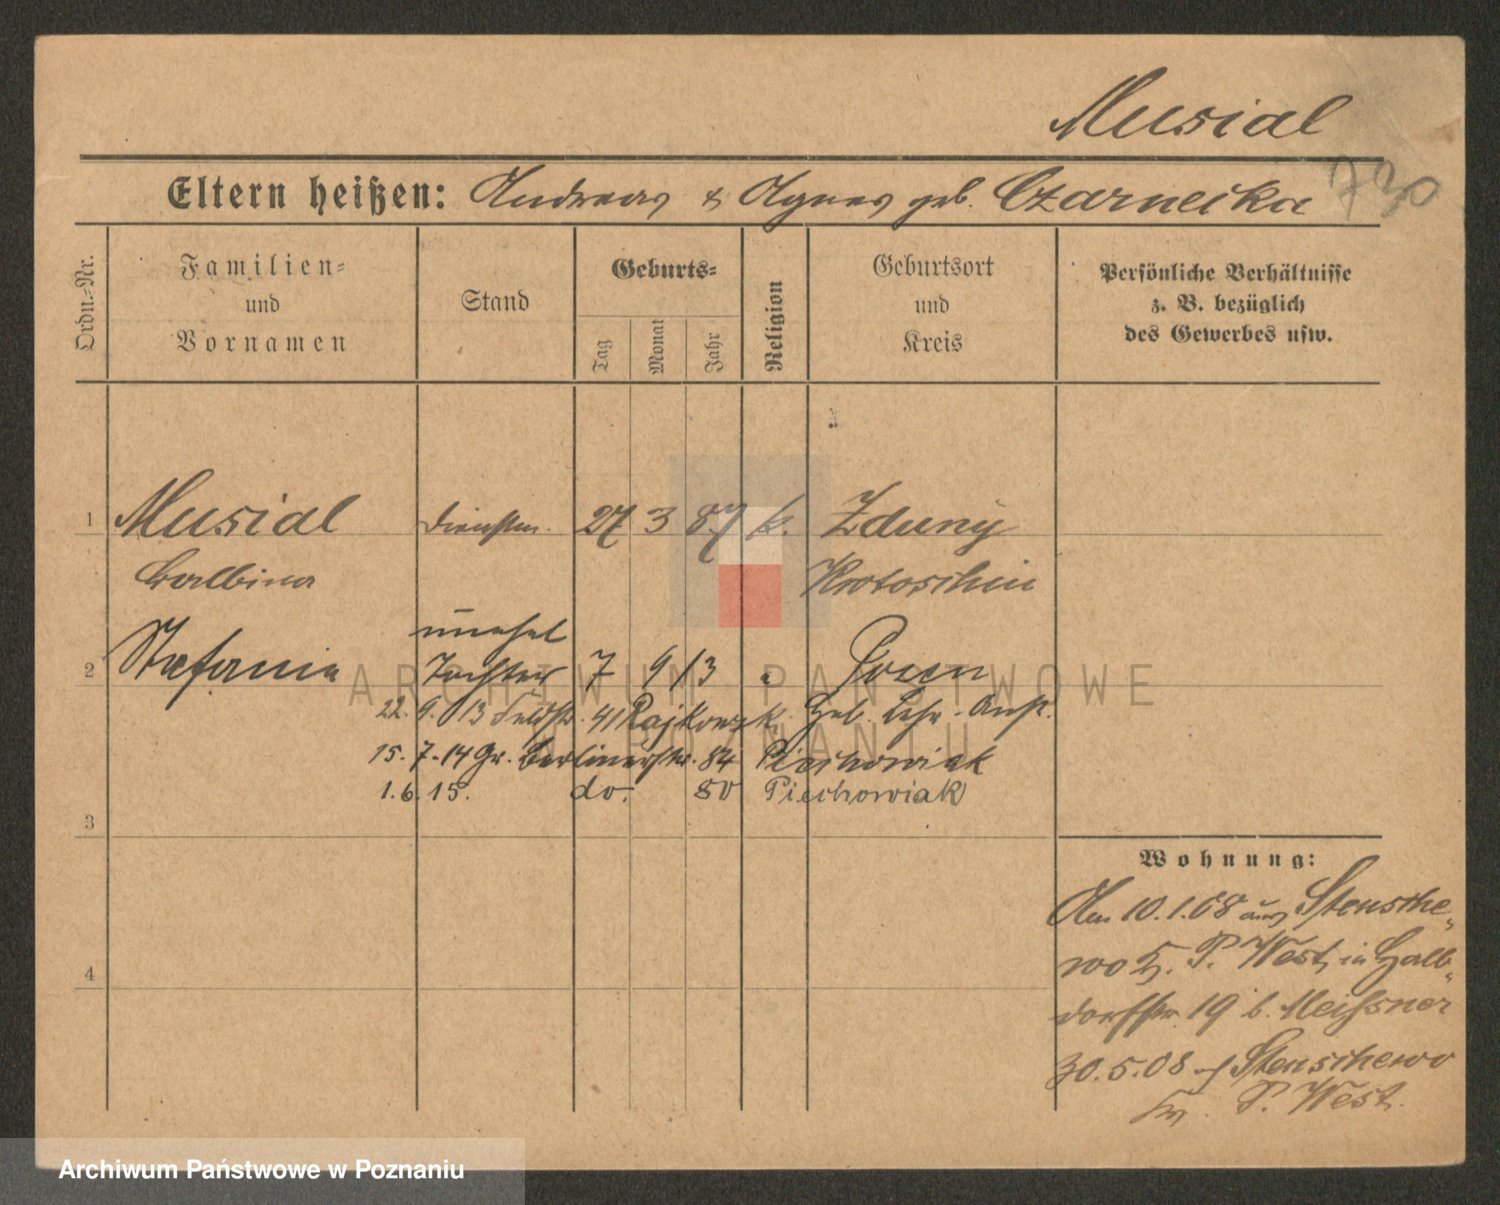 Musial
730
Eltern heißen: Andreas & Agnes geb. Czarnecka
Ordn.-Nr.
Familien-
und
Vornamen
Stand
Geburts-
Tag
Monat
Jahr
Religion
Geburtsort
und
Kreis
Persönliche Verhältnisse
z. B. bezüglich
des Gewerbes usw.
1 Musial 27 3 87 k. Zduny
Balbina Krotoschin
unehel
2 Stefania Tochter 7 9 13 " Posen
22. 9. 13 Feldstr. 41 Rajkowsk
15. 7. 14 Gr. Berlinerstr. 84 Piechowiak
1. 6. 15. do. 80 Piechowiak
3
4
Wohnung:
Am 10.1.08 aus Stensche-
wo P. West in Halb-
dorfstr. 19 b. Meißner
30.5.08 Stenschewo
P. West.
ARCHIWUM PAŃSTWOWE
W POZNANIU
Archiwum Państwowe w Poznaniu